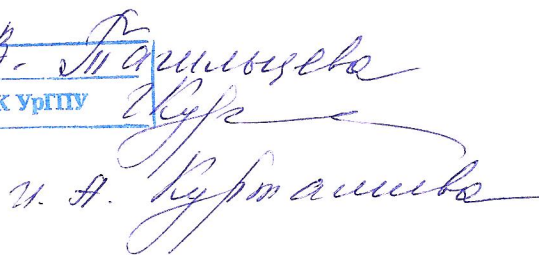 В. Тагильцева
К УрГПУ
Кур
И. А. Курталиева